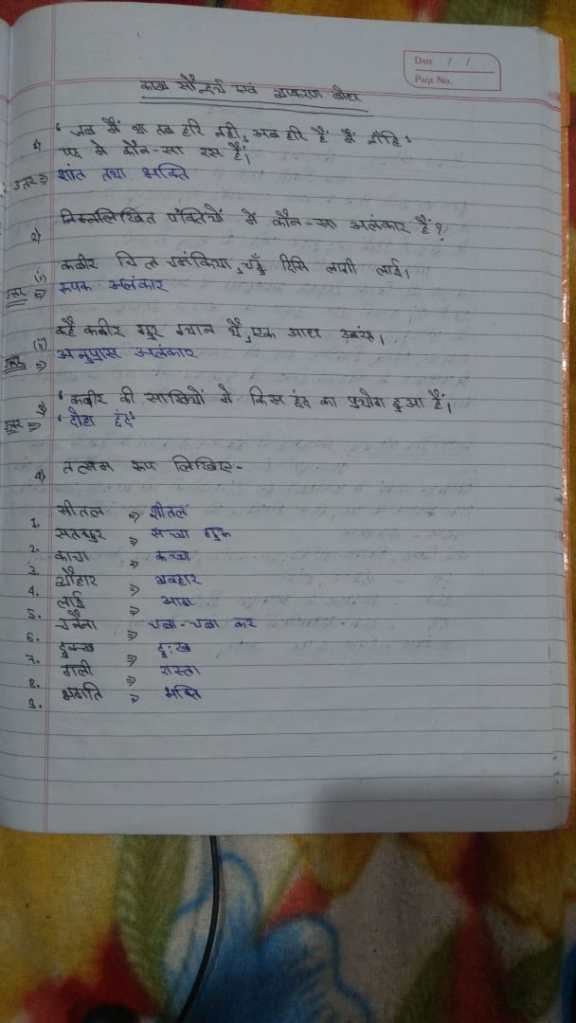 Date / /
Page No.
काव्य सौन्दर्य एवं व्याकरण बोध
1) "जब मैं था तब हरि नहीं, अब हरि हैं मैं नाँहि।
पद में कौन-सा रस हैं।
उत्तर⇒ शांत तथा भक्ति
2) निम्नलिखित पंक्तियों में कौन-सा अलंकार हैं?
(i) कबीर चित चमंकिया, चहुँ दिसि लागी लाई।
उत्तर ⇒ रूपक अलंकार
(ii) कहै कबीर गुर ग्यान थैं, एक आध उबरंत।
उत्तर ⇒ अनुप्रास अलंकार
3) "कबीर की साखियों में किस छंद का प्रयोग हुआ हैं।
उत्तर ⇒ "दोहा छंद"
4) तत्सम रूप लिखिए-
1. सीतल ⇒ शीतल
2. सतगुर ⇒ सच्चा गुरू
3. काचा ⇒ कच्चा
4. ब्यौहार ⇒ व्यवहार
5. लाई ⇒ आग
6. ⇒
7. दुक्ख ⇒ दु:ख
8. गली ⇒ रास्ता
9. भगति ⇒ भक्ति